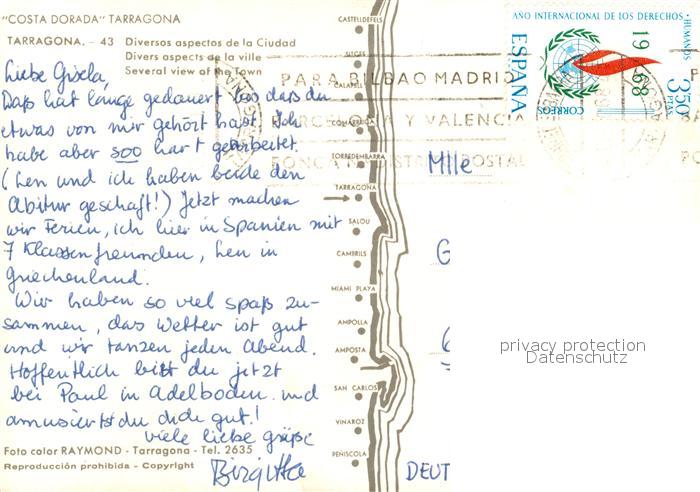 "COSTA DORADA" TARRAGONA
TARRAGONA. - 43 Diversos aspectos de la Ciudad
Divers aspects de la ville
Several view of the Town
Liebe Gisela,
Daß hat lange gedauert bis daß du
etwas von mir gehört hast. Ich
habe aber soo hart gearbeitet.
(Len und ich haben beide den
Abitur geschaft!) Jetzt machen
wir Ferien, ich hier in Spanien mit
7 Klassenfreunden, Len in
Griechenland.
Wir haben so viel spaß zu-
sammen, das Wetter ist gut
und wir tanzen jeden Abend.
Hoffentlich bist du jetzt
bei Paul in Adelboden und
amusierst du dich gut!
viele liebe grüße
Birgitta
Foto color RAYMOND - Tarragona - Tel. 2635
Reproducción prohibida - Copyright
CASTELLDEFELS
SITGES
CALAFELL
COMARRUGA
TORREDEMBARRA
TARRAGONA
SALOU
CAMBRILS
MIAMI PLAYA
AMPOLLA
AMPOSTA
SAN CARLOS
VINAROZ
PEÑISCOLA
AÑO INTERNACIONAL DE LOS DERECHOS HUMANOS
1968
3,50 PTAS
ESPAÑA
CORREOS
PARA BILBAO MADRID
Y VALENCIA
POSTAL
Mlle
G
DEUT
privacy protection
Datenschutz